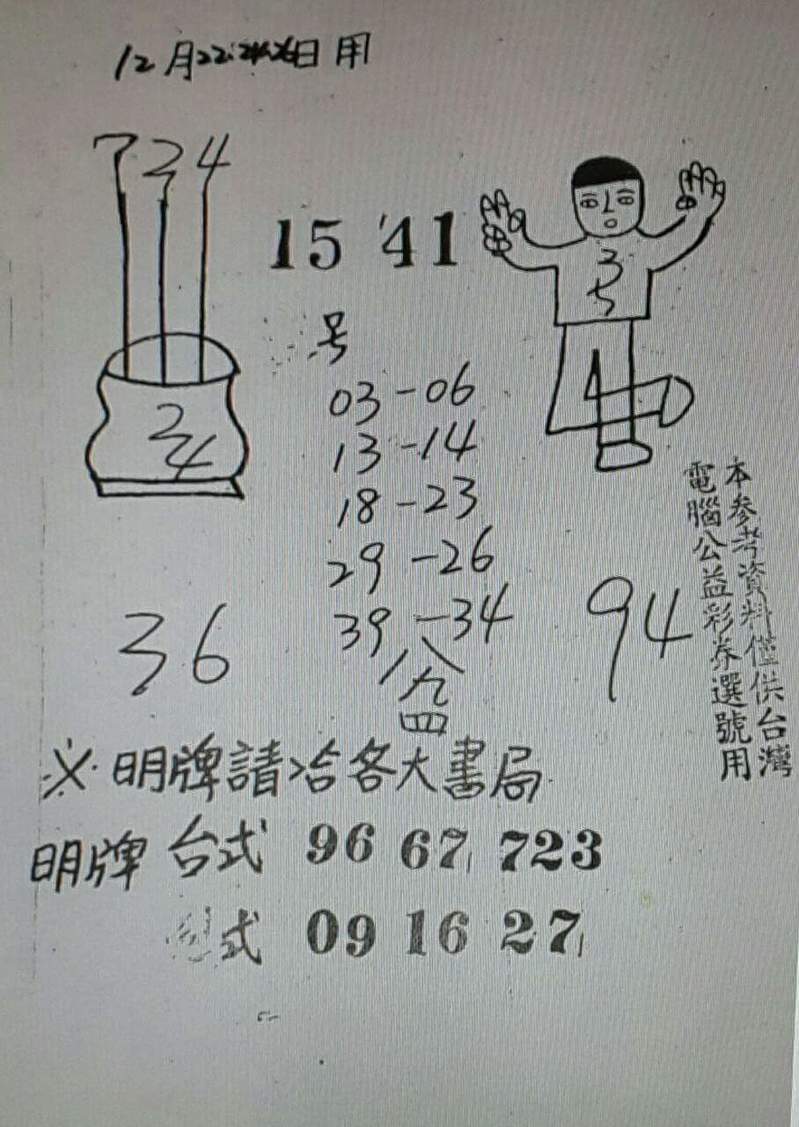 12月22.24.26日用
7 2 4
15 41
3
5
号
03-06
13-14
18-23
29-26
39-34
2
4
1
36
八
九
四
94
本參考資料僅供台灣
電腦公益彩券選號用
※明牌請洽各大書局
明牌 台式 96 67 723
式 09 16 27